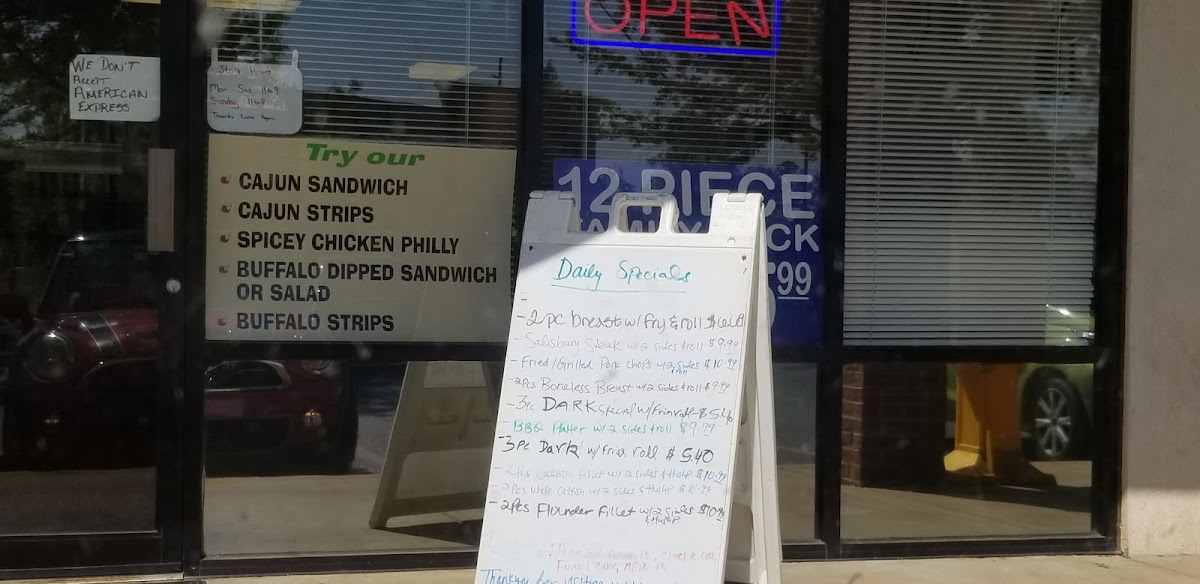 OPEN
WE DON'T
ACCEPT
AMERICAN
EXPRESS
Store Hours
Mon Sat 11 to 9
Sunday 11 to 8
Thanks Come Again
Try our
CAJUN SANDWICH
CAJUN STRIPS
SPICEY CHICKEN PHILLY
BUFFALO DIPPED SANDWICH
OR SALAD
BUFFALO STRIPS
12 PIECE
.99
Daily Specials
- 2 pc breast w/ fry & roll
- Salisbury Steak w/ 2 sides & roll $9.99
- Fried/Grilled Pork Chops w/ 2 sides $10.99
& roll
- 2pcs Boneless Breast w/ 2 sides & roll $9.99
- 3pc DARK special w/ Fries roll
- BBQ Platter w/ 2 sides & roll $9.99
- 3pc Dark w/ Fries roll $5.40
- 2 pcs Catfish Fillet w/ 2 sides & HushP $10.99
- 2 Pcs Whole Catfish w/ 2 sides & HushP $10.99
- 2 Pcs Flounder Fillet w/ 2 sides $10.99
& HushP
Funnel Cake,
Thank you for visiting